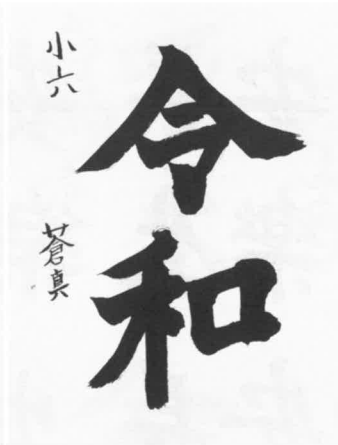 令和
小六
蒼真